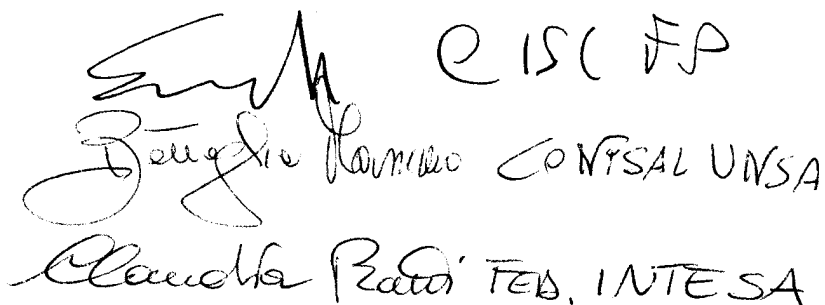 CISL FP
Battaglia CONFSAL UNSA
Claudia Ratti FED. INTESA